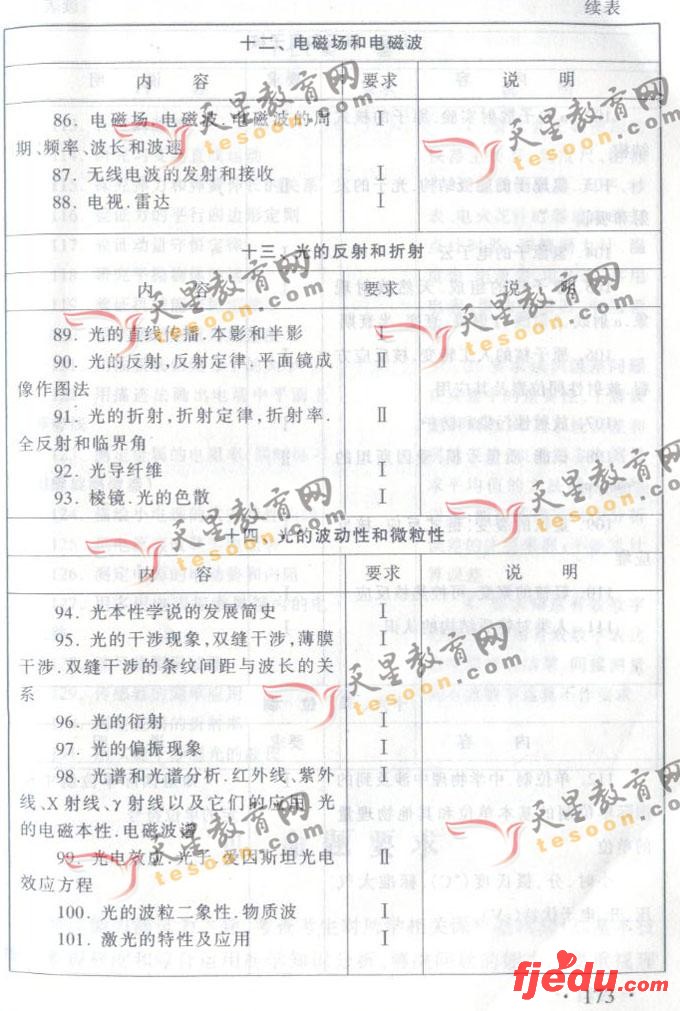 续表
十二、电磁场和电磁波
内 容 要求 说 明
86. 电磁场.电磁波.电磁波的周 Ⅰ
期、频率、波长和波速
87. 无线电波的发射和接收 Ⅰ
88. 电视.雷达 Ⅰ
十三、光的反射和折射
内 容 要求 说 明
89. 光的直线传播.本影和半影 Ⅰ
90. 光的反射,反射定律.平面镜成
像作图法
91. 光的折射,折射定律,折射率. Ⅱ
全反射和临界角
92. 光导纤维 Ⅰ
93. 棱镜.光的色散 Ⅰ
十四、光的波动性和微粒性
内 容 要求 说 明
94. 光本性学说的发展简史 Ⅰ
95. 光的干涉现象,双缝干涉,薄膜 Ⅰ
干涉.双缝干涉的条纹间距与波长的关
系
96. 光的衍射 Ⅰ
97. 光的偏振现象 Ⅰ
98. 光谱和光谱分析.红外线、紫外 Ⅰ
线、X射线、γ射线以及它们的应用.光
的电磁本性.电磁波谱
99. 光电效应.光子.爱因斯坦光电 Ⅱ
效应方程
100. 光的波粒二象性.物质波 Ⅰ
101. 激光的特性及应用 Ⅰ
· 173 ·
天星教育网
tesoon.com
天星教育网
tesoon.com
天星教育网
tesoon.com
天星教育网
tesoon.com
天星教育网
tesoon.com
天星教育网
tesoon.com
天星教育网
tesoon.com
天星教育网
tesoon.com
天星教育网
tesoon.com
fjedu.com